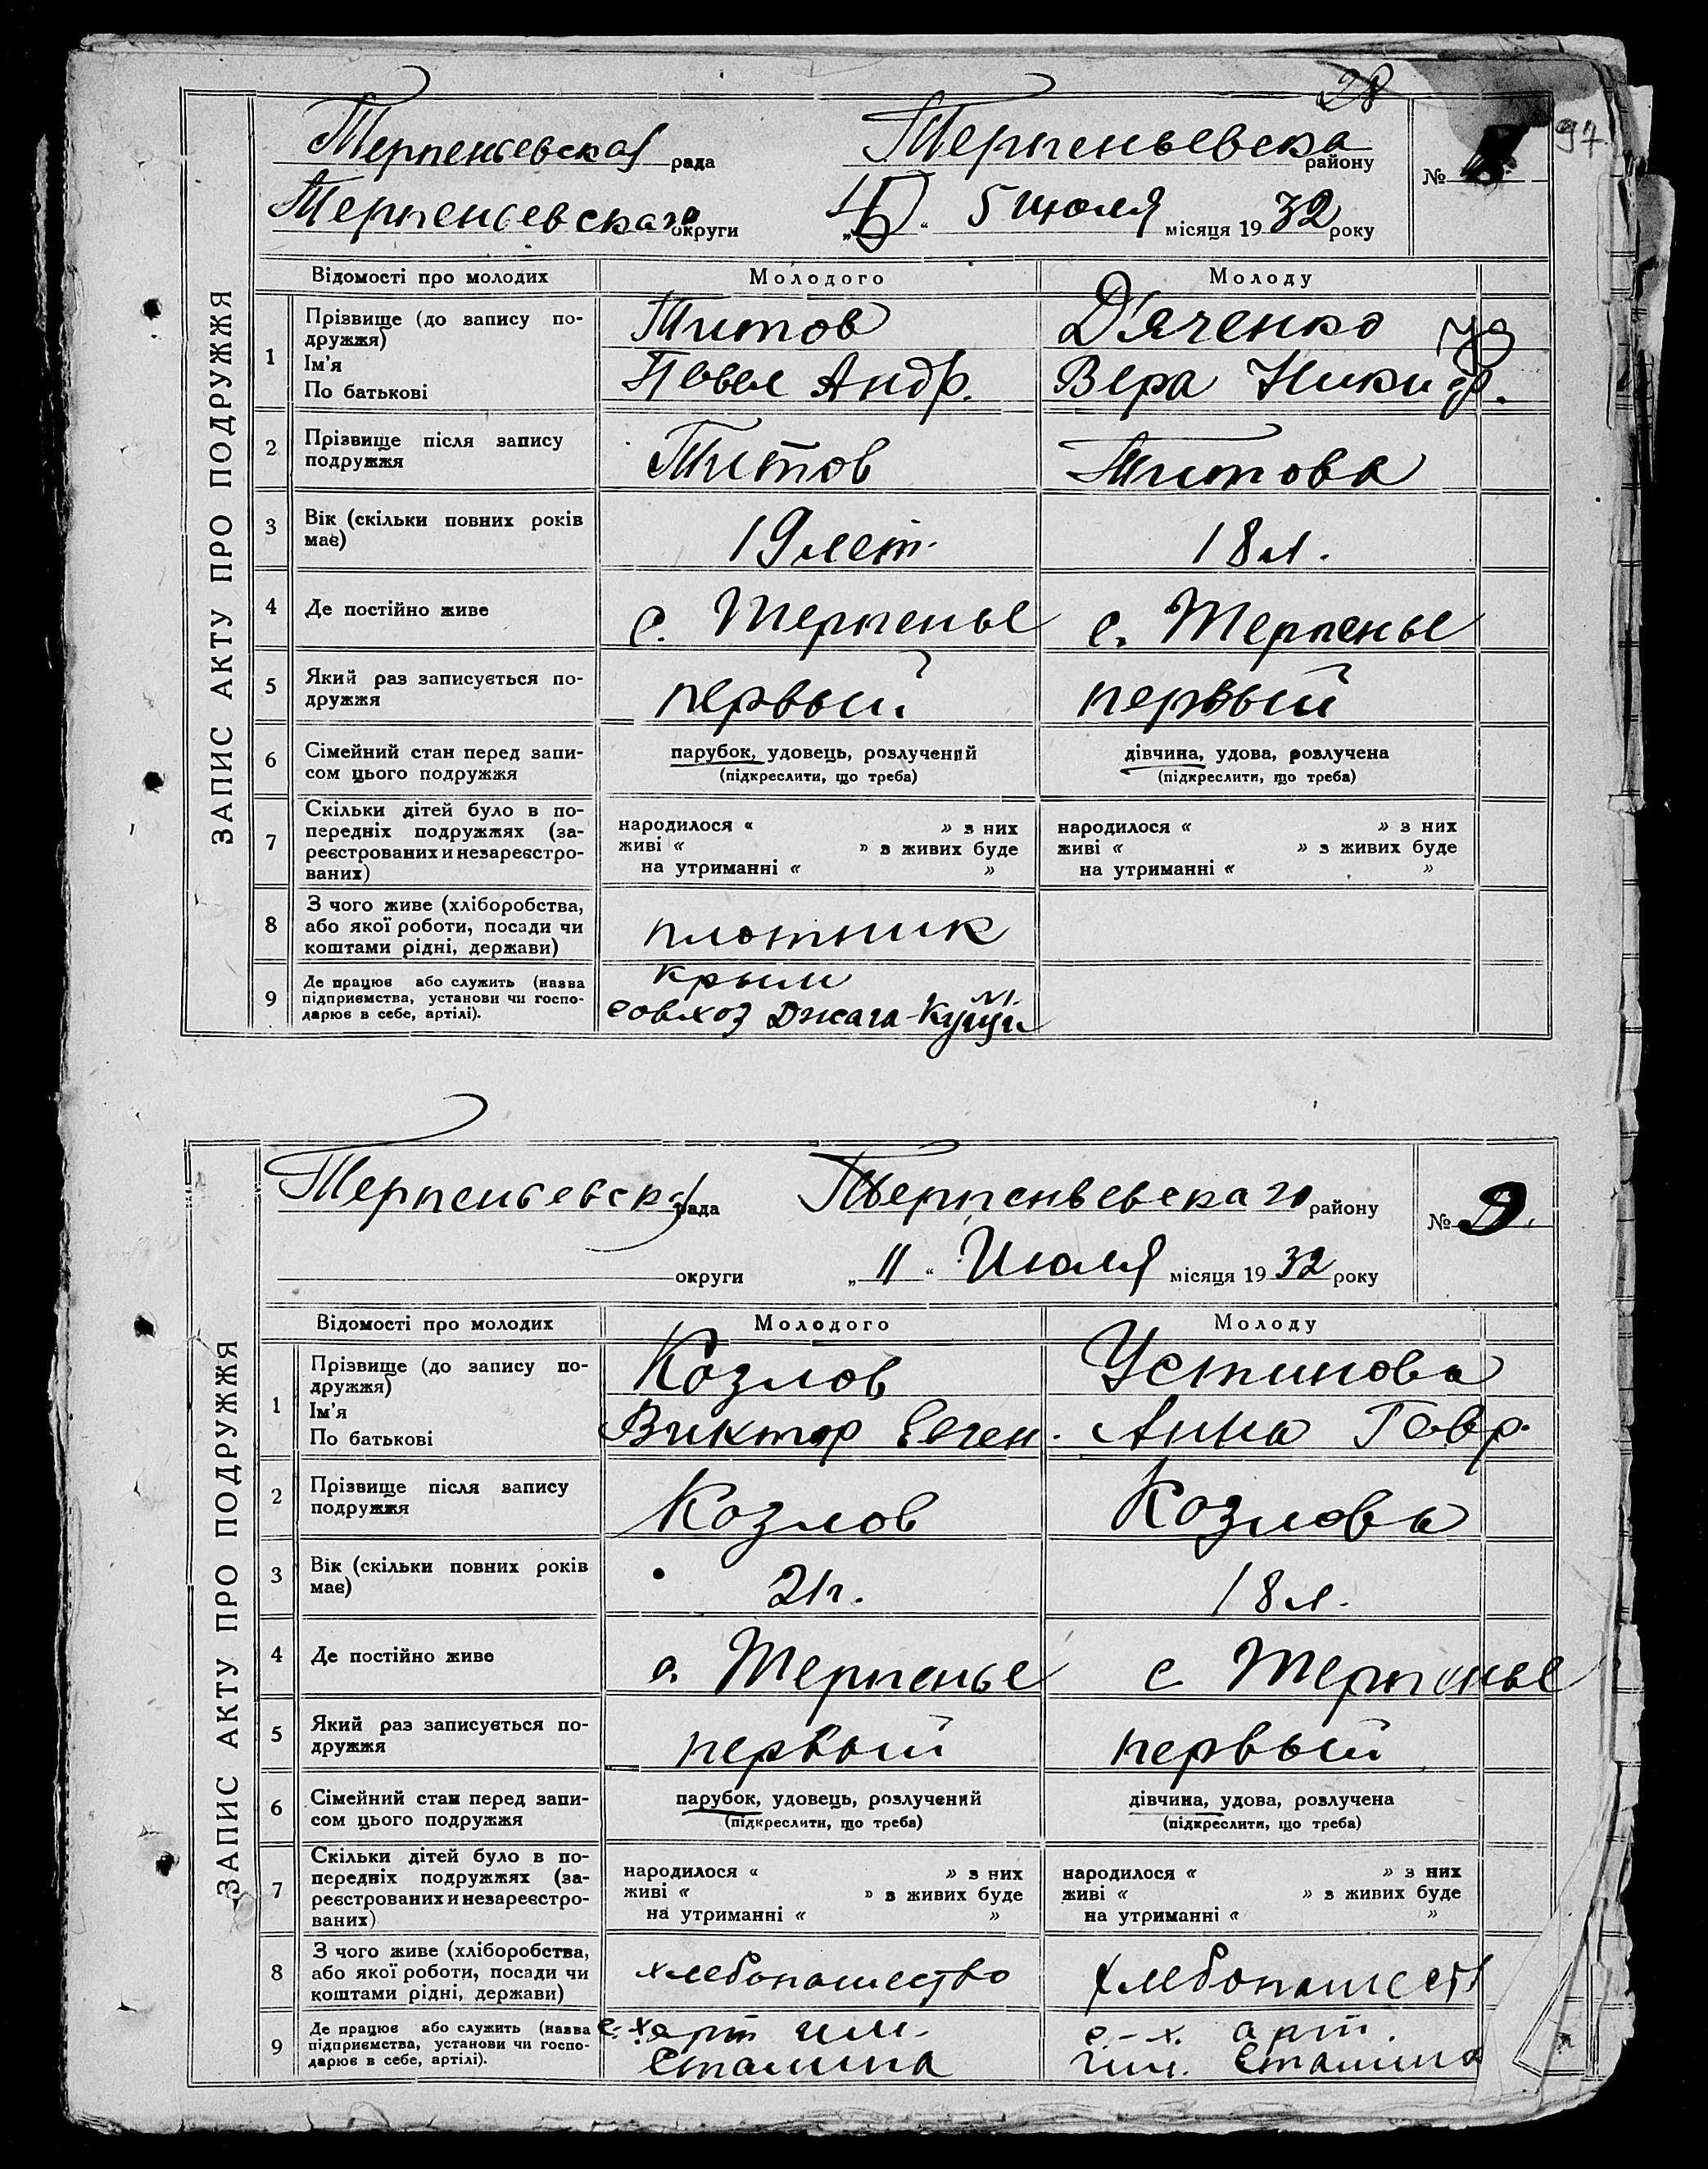 28
97
ЗАПИС АКТУ ПРО ПОДРУЖЖЯ
Терпеньевская рада Терпеньевска району №
Терпеньевскаго округи „ “ 5 июля місяця 1932 року
Відомості про молодих Молодого Молоду
1 Прізвище (до запису по-
дружжя)
Ім’я
По батькові
Титов Дьяченко
Павел Андр. Вера Никиф.
2 Прізвище після запису
подружжя
Титов Титова
3 Вік (скільки повних років
має)
19 лет. 18 л.
4 Де постійно живе с. Терпенье с. Терпенье
5 Який раз записується по-
дружжя
первый первый
6 Сімейний стан перед запи-
сом цього подружжя
парубок, удовець, розлучений дівчина, удова, розлучена
(підкреслити, що треба) (підкреслити, що треба)
7 Скільки дітей було в по-
передніх подружжях (за-
реєстрованих и незареєстро-
ваних)
народилося « » з них народилося « » з них
живі « » з живих буде живі « » з живих буде
на утриманні « » на утриманні « »
8 З чого живе (хліборобства,
або якої роботи, посади чи
коштами рідні, держави)
плотник
9 Де працює або служить (назва
підприємства, установи чи госпо-
дарює в себе, артілі).
Крым
совхоз Джага-
ЗАПИС АКТУ ПРО ПОДРУЖЖЯ
Терпеньевская рада Терпеньевскаго району № 9.
округи „ 11 “ Июля місяця 1932 року
Відомості про молодих Молодого Молоду
1 Прізвище (до запису по-
дружжя)
Ім’я
По батькові
Козлов Устинова
Виктор Евген. Анна Гавр.
2 Прізвище після запису
подружжя
Козлов Козлова
3 Вік (скільки повних років
має)
21 г. 18 л.
4 Де постійно живе с. Терпенье с Терпенье
5 Який раз записується по-
дружжя
первый первый
6 Сімейний стан перед запи-
сом цього подружжя
парубок, удовець, розлучений дівчина, удова, розлучена
(підкреслити, що треба) (підкреслити, що треба)
7 Скільки дітей було в по-
передніх подружжях (за-
реєстрованих и незареєстро-
ваних)
народилося « » з них народилося « » з них
живі « » з живих буде живі « » з живих буде
на утриманні « » на утриманні « »
8 З чого живе (хліборобства,
або якої роботи, посади чи
коштами рідні, держави)
хлебопашество хлебопашест
9 Де працює або служить (назва
підприємства, установи чи госпо-
дарює в себе, артілі).
с-х арт им. с-х. арт.
Сталина им. Сталина